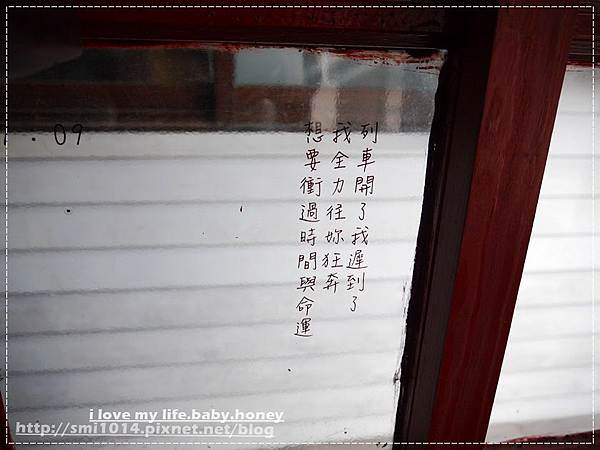 列車開了我遲到了
我全力往妳狂奔
想要衝過時間與命運
.09
i love my life.baby.honey
http://smi1014.pixnet.net/blog